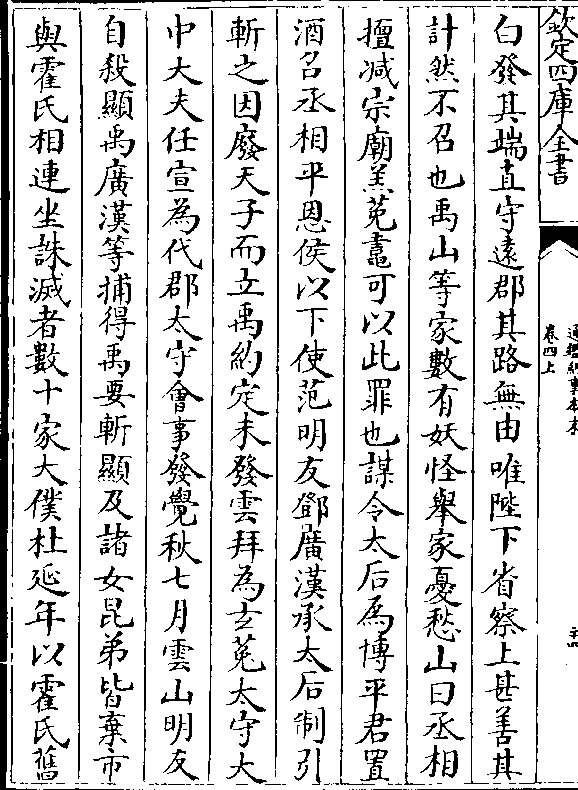 欽定四庫全書
通鑑紀事本末
卷四上
白發其端直守遠郡其路無由唯陛下省察上甚善其
計然不召也禹山等家數有妖怪舉家憂愁山曰丞相
擅减宗廟羔菟鼃可以此罪也謀令太后為博平君置
酒召丞相平恩侯以下使范明友鄧廣漢承太后制引
斬之因廢天子而立禹約定未發雲拜為玄菟太守大
中大夫任宣為代郡太守會事發覺秋七月雲山明友
自殺顯禹廣漢等捕得禹要斬顯及諸女昆弟皆棄市
與霍氏相連坐誅滅者數十家大僕杜延年以霍氏舊